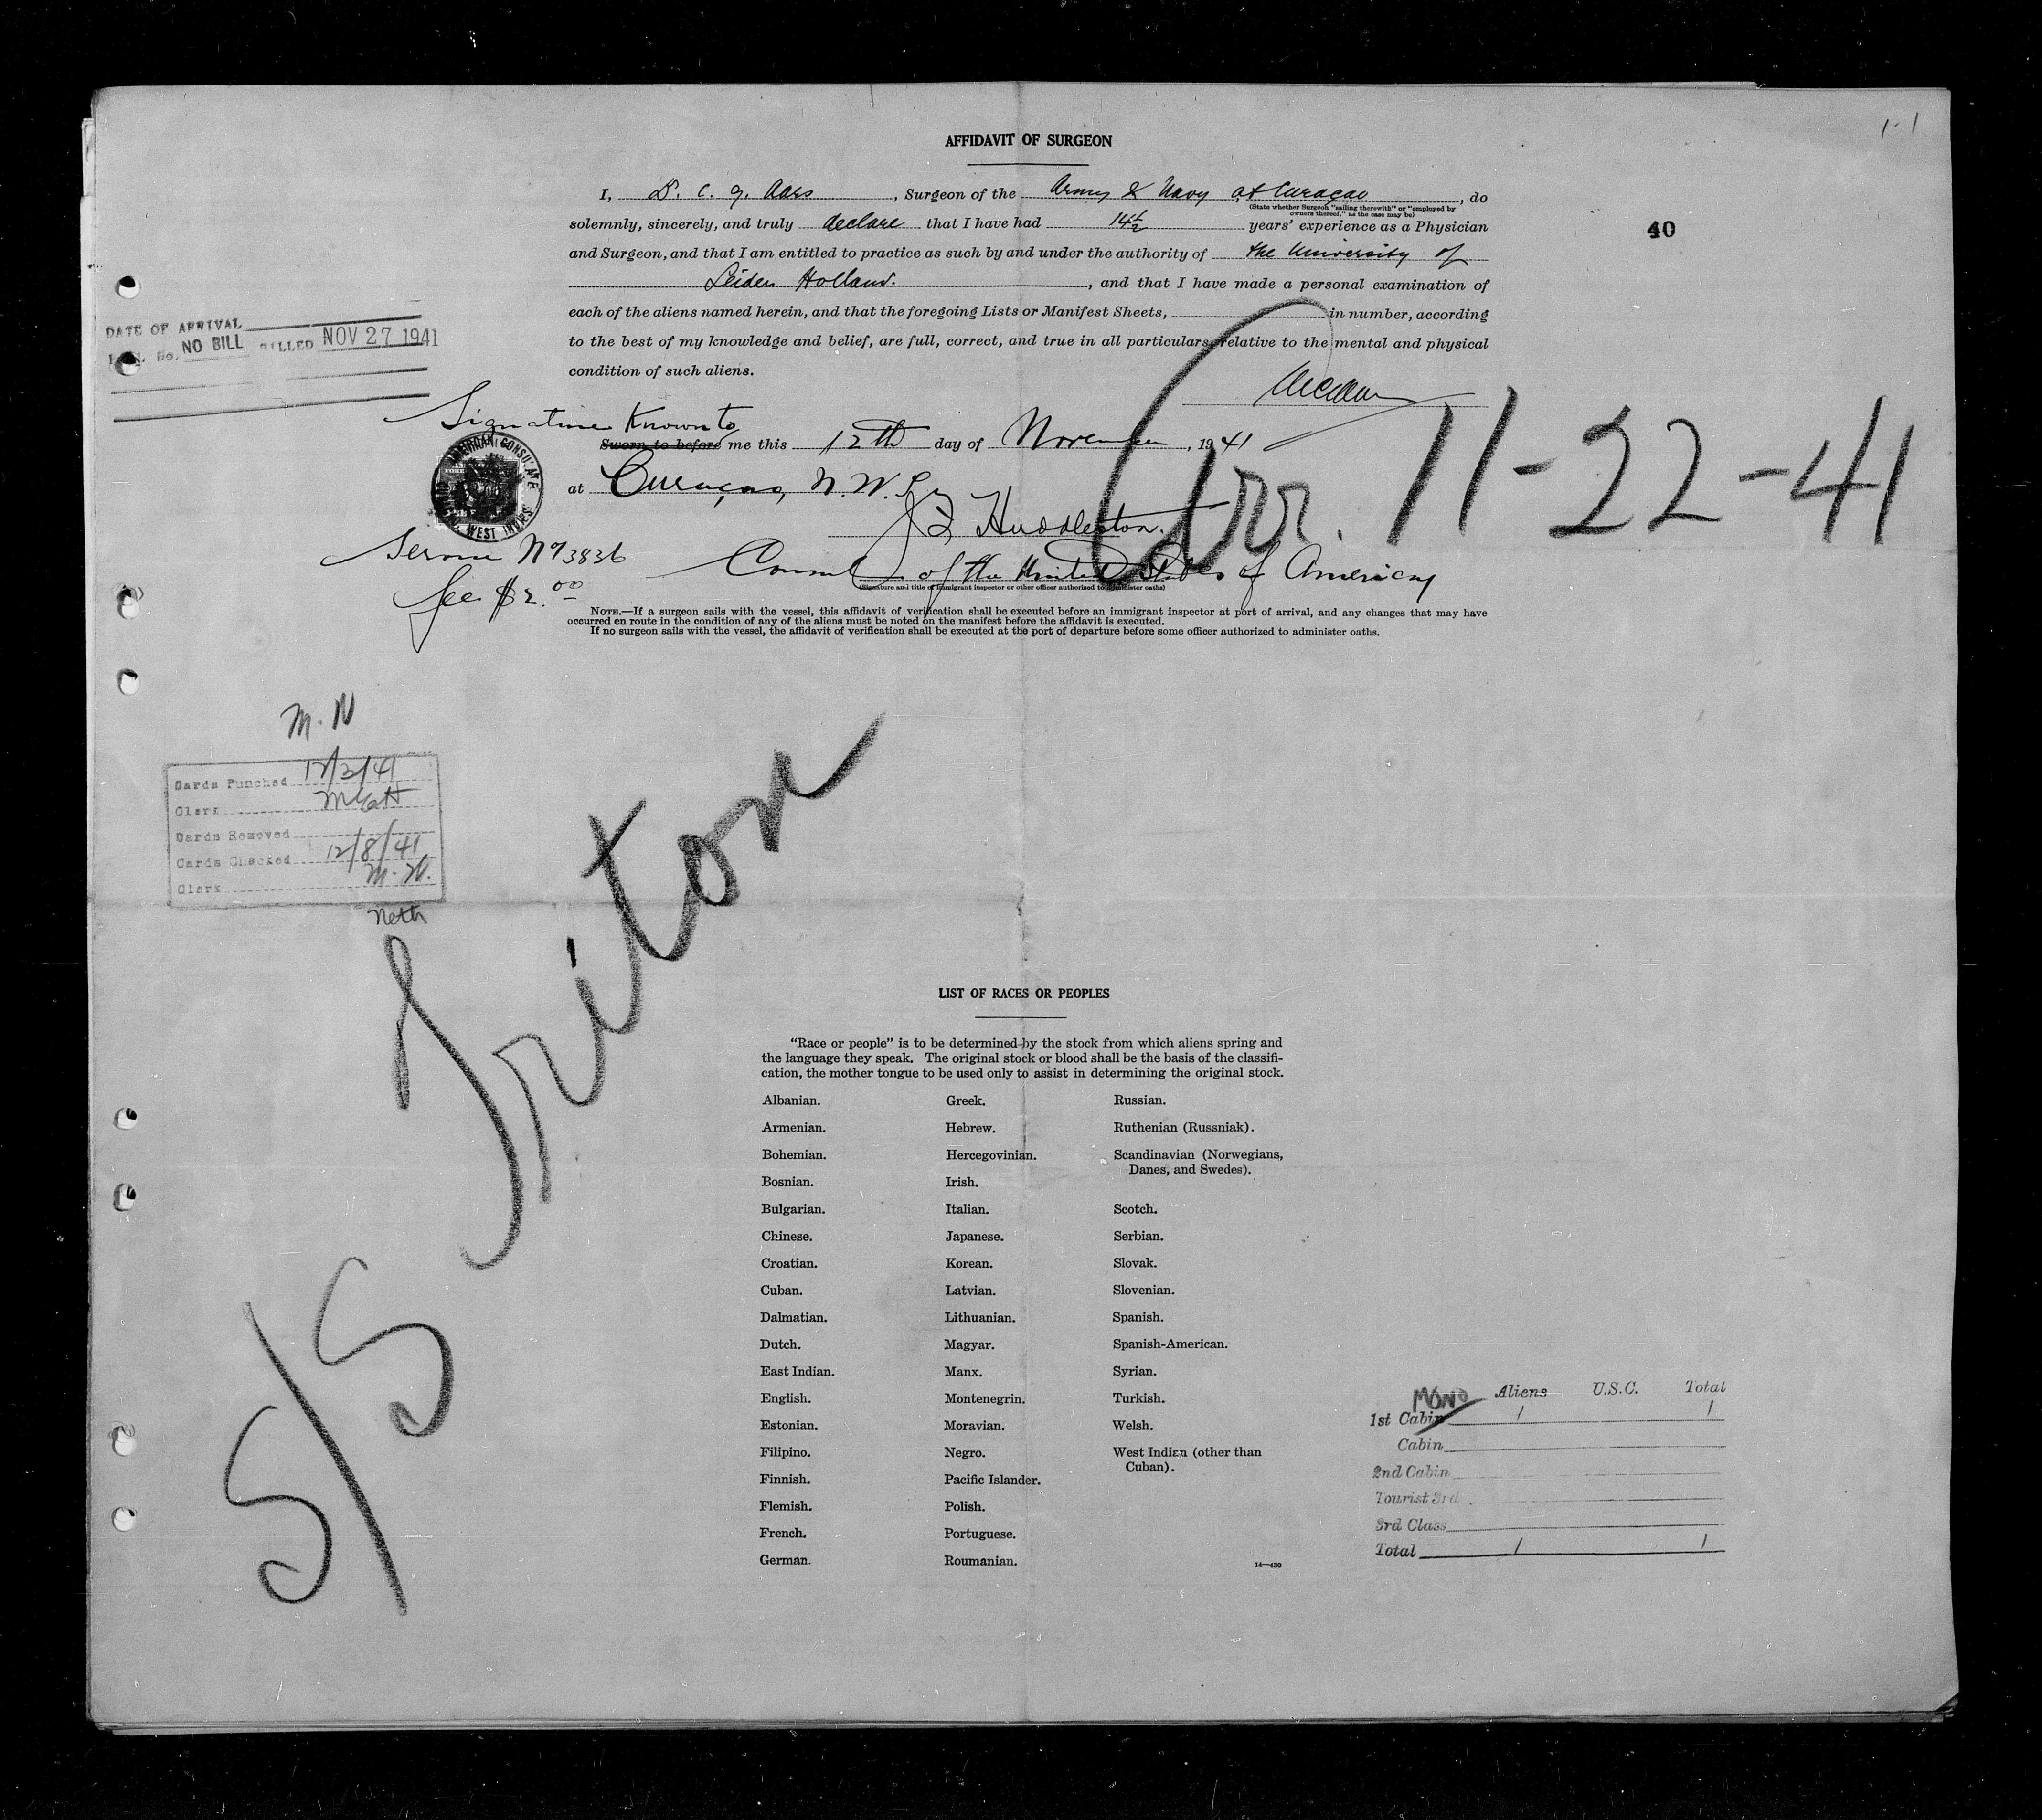 1-1
AFFIDAVIT OF SURGEON
I, D. C. J. Aars, Surgeon of the Army & Navy at Curaçao, do
(State whether Surgeon "sailing therewith" or "employed by
owners thereof," as the case may be)
solemnly, sincerely, and truly declare that I have had 14½ years' experience as a Physician
40
and Surgeon, and that I am entitled to practice as such by and under the authority of the University of
Leiden Holland., and that I have made a personal examination of
each of the aliens named herein, and that the foregoing Lists or Manifest Sheets, in number, according
to the best of my knowledge and belief, are full, correct, and true in all particulars relative to the mental and physical
condition of such aliens.
DATE OF ARRIVAL
No. NO BILL BILLED NOV 27 1941
Signature Known to
Sworn to before me this 12th day of November, 1941
Arr. 11-22-41
at Curaçao, N.W.I.
AMERICAN CONSULATE
WEST INDIES
J F Huddleston.
Service No 3836
Consul of the United States of America
(Signature and title of immigrant inspector or other officer authorized to administer oaths)
Fee $2.00
NOTE.—If a surgeon sails with the vessel, this affidavit of verification shall be executed before an immigrant inspector at port of arrival, and any changes that may have
occurred en route in the condition of any of the aliens must be noted on the manifest before the affidavit is executed.
If no surgeon sails with the vessel, the affidavit of verification shall be executed at the port of departure before some officer authorized to administer oaths.
M. N
Cards Punched 12/3/41
Clerk
Cards Removed
Cards Checked 12/8/41
Clerk M. N.
Neth
S/S Triton
LIST OF RACES OR PEOPLES
"Race or people" is to be determined by the stock from which aliens spring and
the language they speak. The original stock or blood shall be the basis of the classifi-
cation, the mother tongue to be used only to assist in determining the original stock.
Albanian.
Armenian.
Bohemian.
Bosnian.
Bulgarian.
Chinese.
Croatian.
Cuban.
Dalmatian.
Dutch.
East Indian.
English.
Estonian.
Filipino.
Finnish.
Flemish.
French.
German.
Greek.
Hebrew.
Hercegovinian.
Irish.
Italian.
Japanese.
Korean.
Latvian.
Lithuanian.
Magyar.
Manx.
Montenegrin.
Moravian.
Negro.
Pacific Islander.
Polish.
Portuguese.
Roumanian.
Russian.
Ruthenian (Russniak).
Scandinavian (Norwegians,
Danes, and Swedes).
Scotch.
Serbian.
Slovak.
Slovenian.
Spanish.
Spanish-American.
Syrian.
Turkish.
Welsh.
West Indian (other than
Cuban).
14—430
MONO Aliens U.S.C. Total
1st Cabin 1 1
Cabin
2nd Cabin
Tourist 3rd
3rd Class
Total 1 1